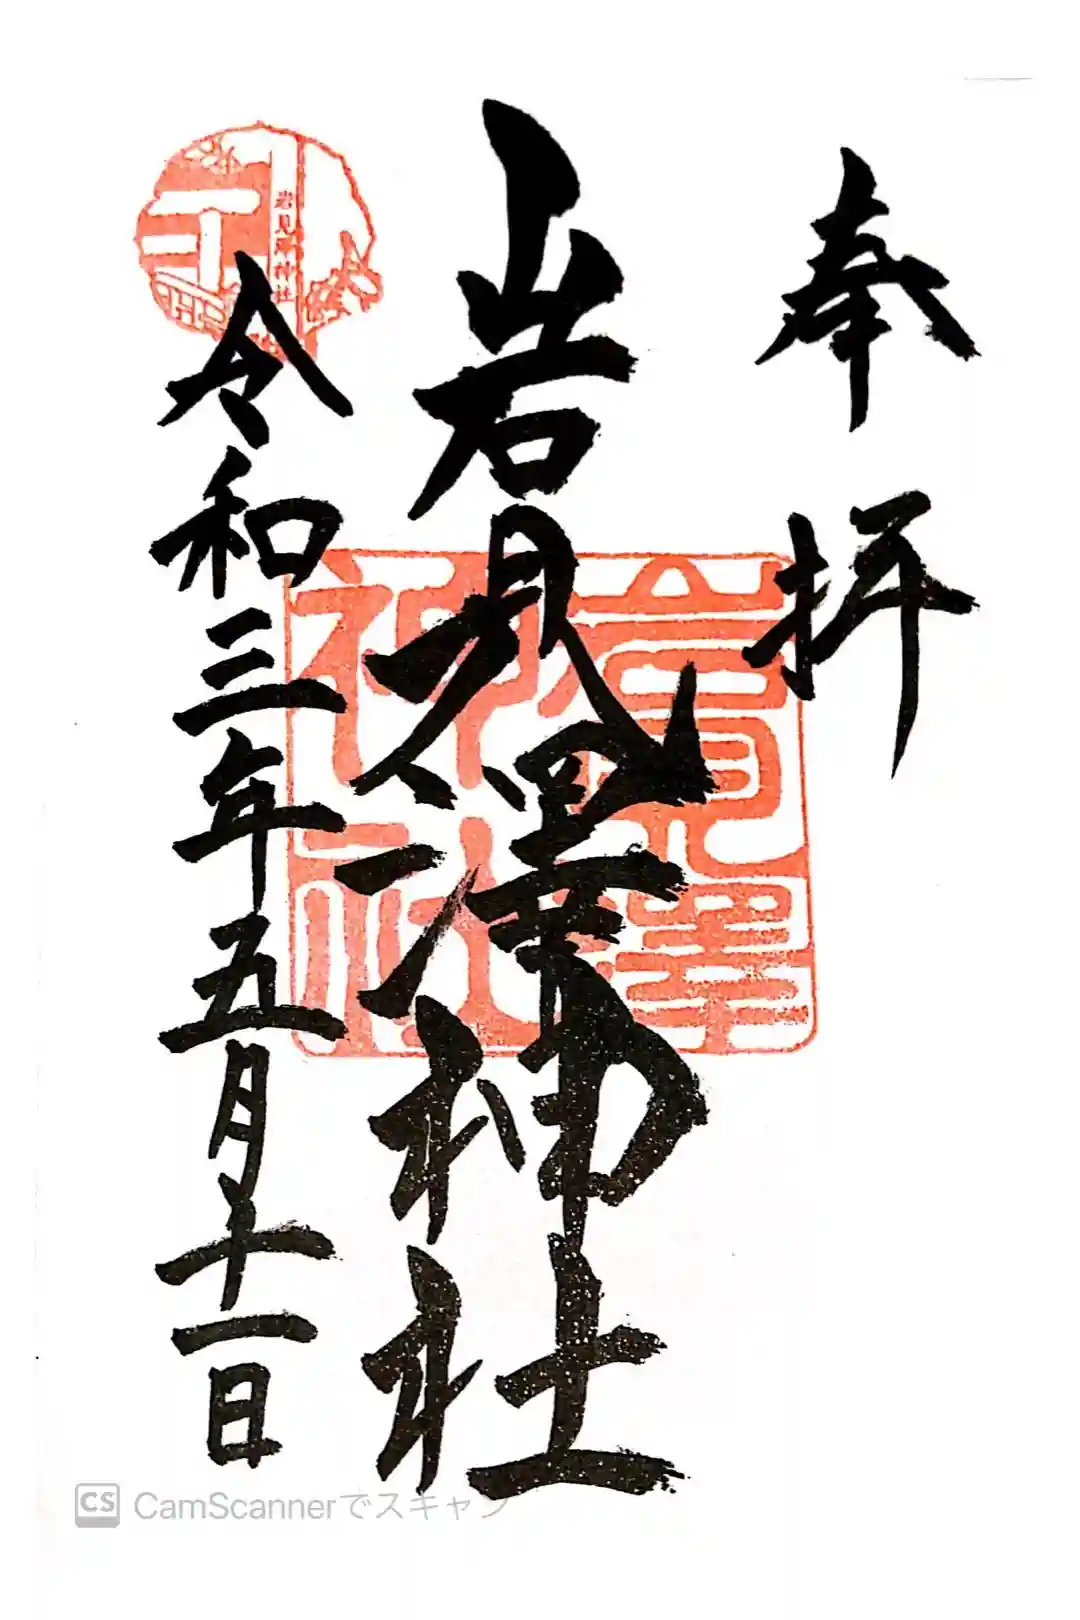 奉拝
岩見澤神社
令和三年五月十一日
岩見澤神社
岩見澤神社
CS CamScannerでスキャン